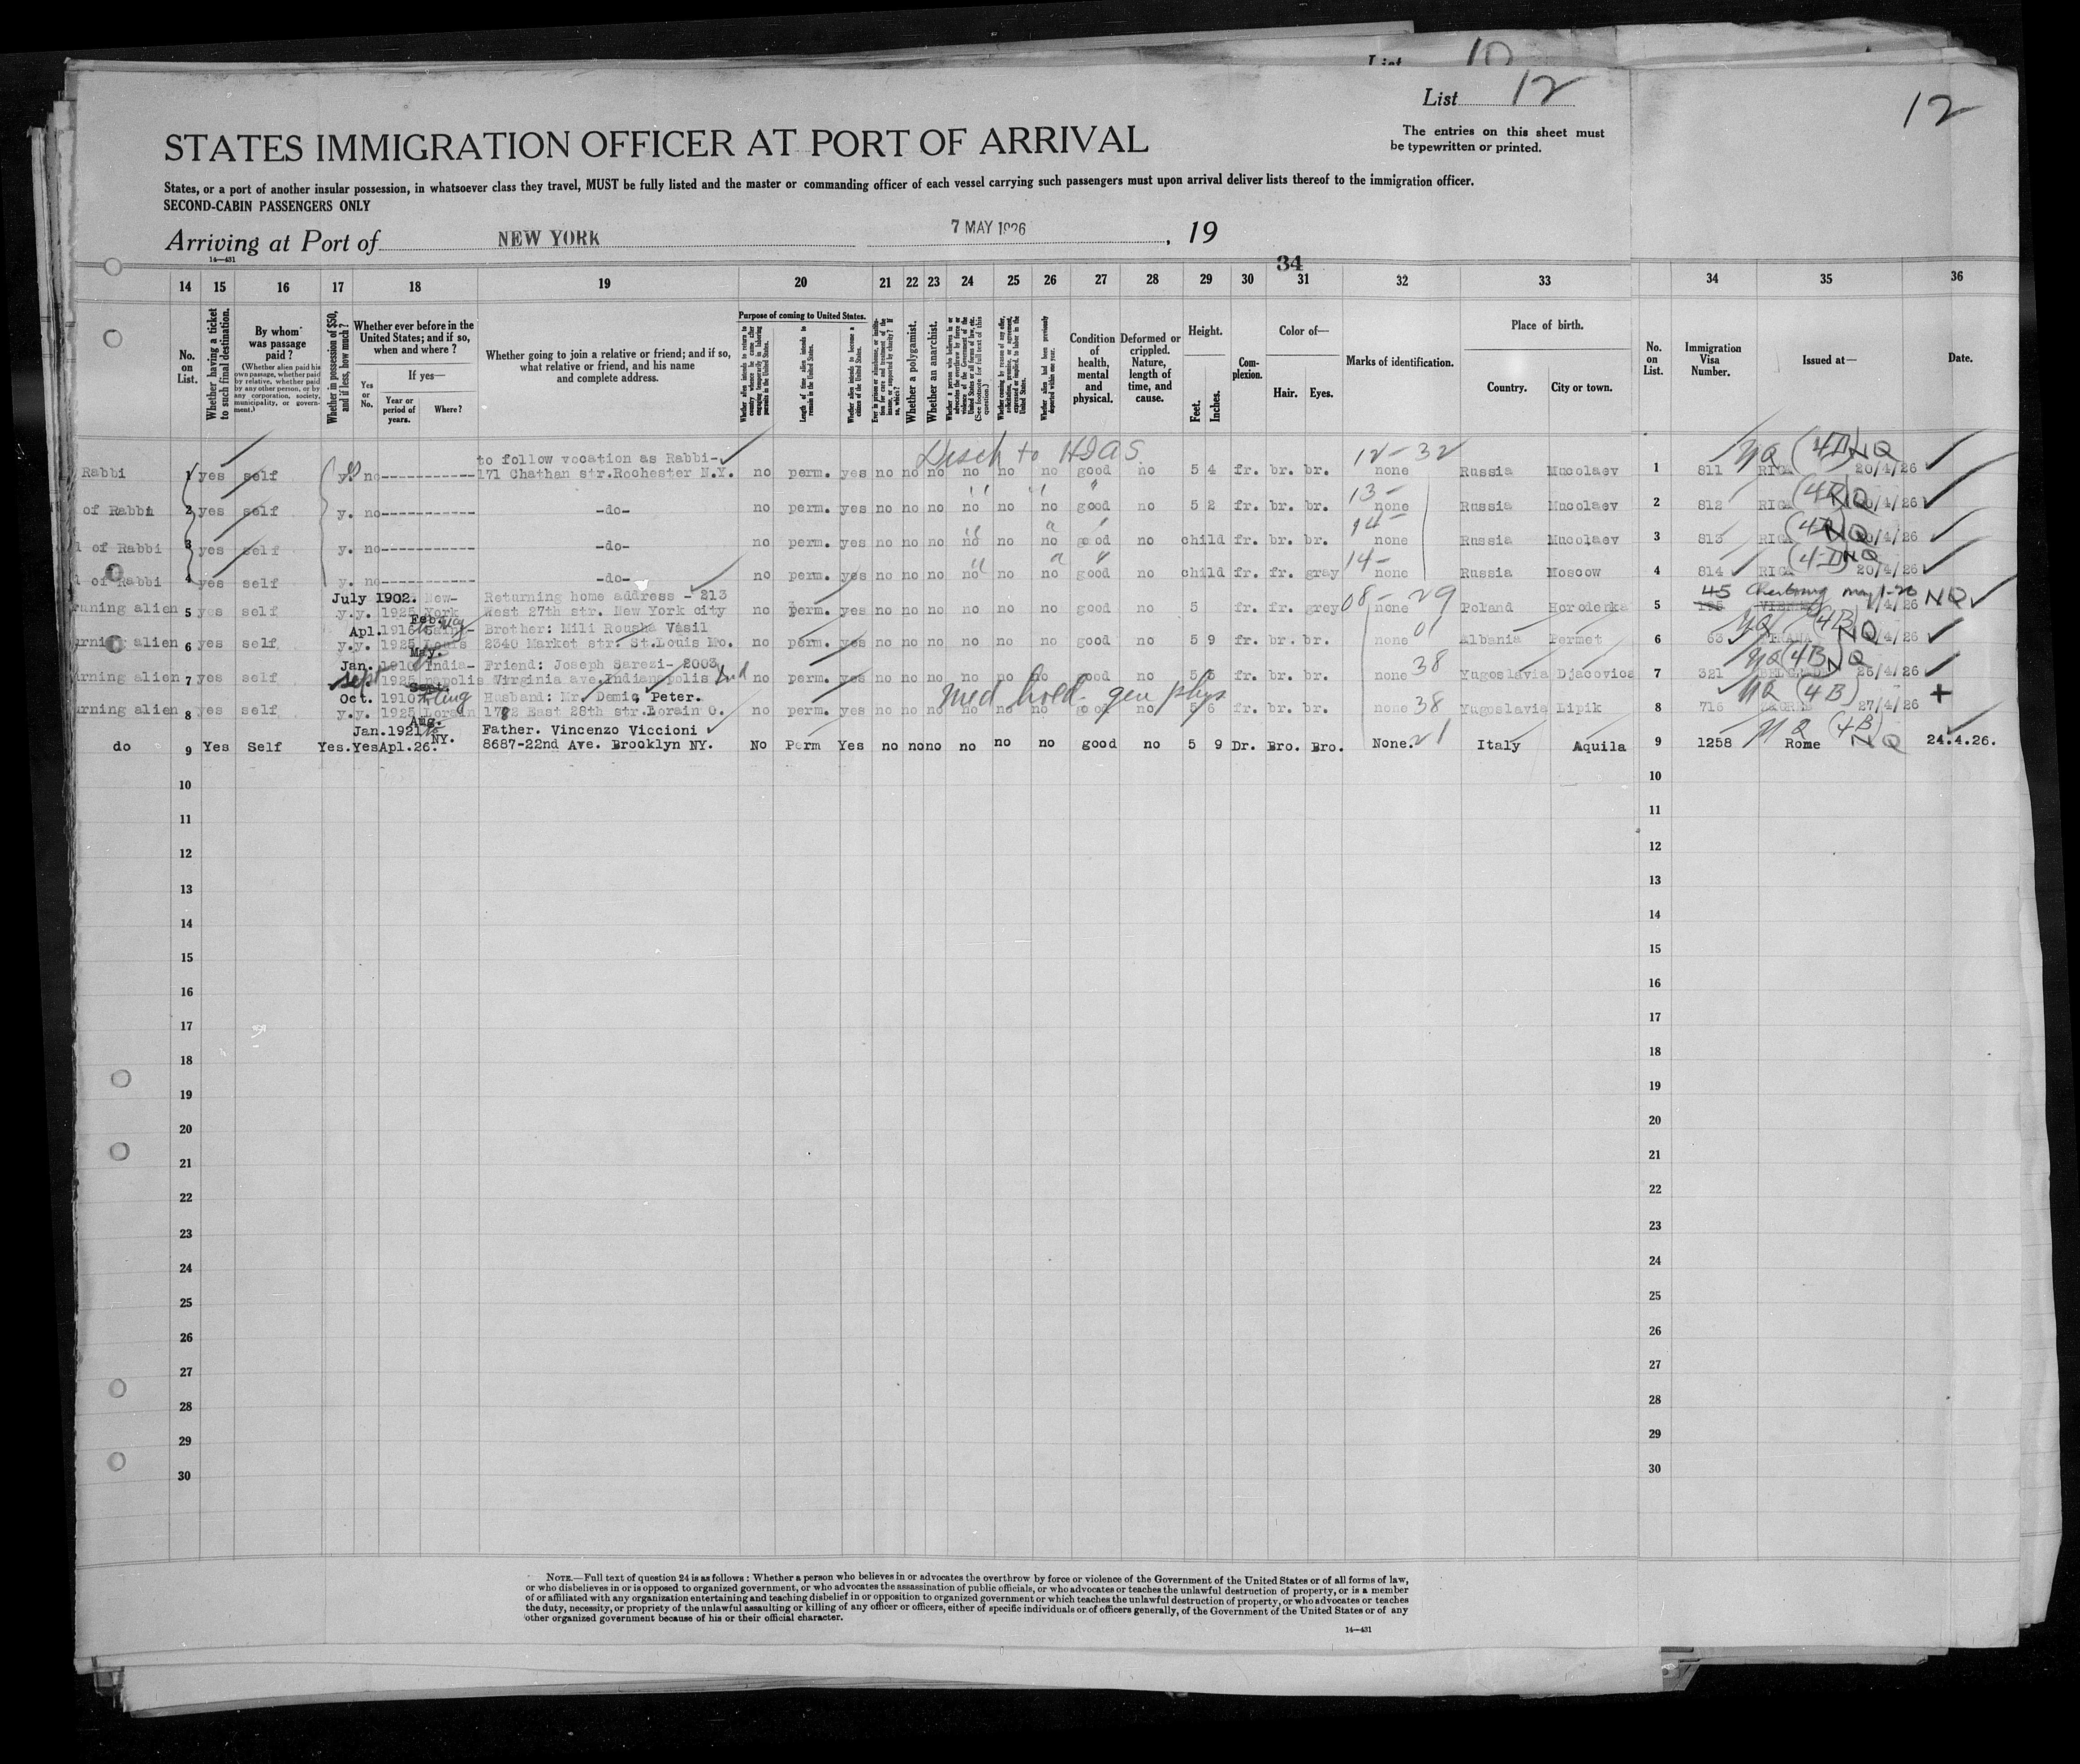 List 10
List 12
12
STATES IMMIGRATION OFFICER AT PORT OF ARRIVAL
The entries on this sheet must be typewritten or printed.
States, or a port of another insular possession, in whatsoever class they travel, MUST be fully listed and the master or commanding officer of each vessel carrying such passengers must upon arrival deliver lists thereof to the immigration officer.
SECOND-CABIN PASSENGERS ONLY
Arriving at Port of NEW YORK 7 MAY 1926, 19
14—431
34
14 15 16 17 18 19 20 21 22 23 24 25 26 27 28 29 30 31 32 33 34 35 36
No. on List.
Whether having a ticket to such final destination.
By whom was passage paid?
(Whether alien paid his own passage, whether paid by relative, whether paid by any other person, or by any corporation, society, municipality, or government.)
Whether in possession of $50, and if less, how much?
Whether ever before in the United States; and if so, when and where?
If yes—
Yes or No.
Year or period of years.
Where?
Whether going to join a relative or friend; and if so, what relative or friend, and his name and complete address.
Purpose of coming to United States.
Length of time alien intends to remain in the United States.
Whether alien intends to become a citizen of the United States.
Whether a polygamist.
Whether an anarchist.
Condition of health, mental and physical.
Deformed or crippled. Nature, length of time, and cause.
Height.
Feet. Inches.
Complexion.
Color of—
Hair. Eyes.
Marks of identification.
Place of birth.
Country. City or town.
No. on List.
Immigration Visa Number.
Issued at—
Date.
Disch to HIAS 12-32 NQ (4D) NQ
to follow vocation as Rabbi-
Rabbi 1 yes self y. no 171 Chathan str.Rochester N.Y. no perm. yes no no no no no no good no 5 4 fr. br. br. none Russia Mucolaev 1 811 RIGA 20/4/26
13- (4D) NQ
of Rabbi 2 yes self y. no -do- no perm. yes no no no no no no good no 5 2 fr. br. br. none Russia Mucolaev 2 812 RIGA /4/26
14- (4D) NQ
of Rabbi 3 yes self y. no -do- no perm. yes no no no no no no good no child fr. br. br. none Russia Mucolaev 3 813 RIGA /4/26
14- (4D) NQ
of Rabbi 4 yes self y. no -do- no perm. yes no no no no no no good no child fr. fr. gray none Russia Moscow 4 814 RIGA 20/4/26
July 1902. New- Returning home address - 213 08-29 45 Cherbourg may 1-26 NQ
alien 5 yes self y.y. 1925 York West 27th str. New York city no perm. yes no no no no no no good no 5 fr. fr. grey none Poland Horodenka 5 /4/26
Feb.
Apl.1916 Brother: Mili Rousha Vasil 01 NQ (4B) NQ
alien 6 yes self y.y. 1925 Louis 2340 Market str. St.Louis Mo. no perm. yes no no no no no no good no 5 9 fr. br. br. none Albania Permet 6 63 TIRANA /4/26
May.
Jan. 1910 India- Friend: Joseph Sarezi- 2003 38 NQ (4B) NQ
alien 7 yes self Sept 1925 napolis Virginia ave.Indianapolis Ind no perm. yes no no no no no no good no 5 6 fr. br. br. none Yugoslavia Djacovica 7 321 BELGRAD 26/4/26
Sept.
Oct. 1910 Husband: Mr. Demic, Peter. Med hold gen phys 38 NQ (4B)
alien 8 yes self y.y. 1925 Lorain East 28th str.Lorain O. no perm. yes no no no no no no good no 5 6 fr. br. br. none Yugoslavia Lipik 8 716 ZAGREB 27/4/26 +
Aug.
Jan.1921 to Father. Vincenzo Viccioni NQ (4B) NQ
do 9 Yes Self Yes.Yes Apl.26. NY. 8687-22nd Ave. Brooklyn NY. No Perm Yes no no no no no no good no 5 9 Dr. Bro. Bro. None. 21 Italy Aquila 9 1258 Rome 24.4.26.
10 10
11 11
12 12
13 13
14 14
15 15
16 16
17 17
18 18
19 19
20 20
21 21
22 22
23 23
24 24
25 25
26 26
27 27
28 28
29 29
30 30
NOTE.—Full text of question 24 is as follows: Whether a person who believes in or advocates the overthrow by force or violence of the Government of the United States or of all forms of law,
or who disbelieves in or is opposed to organized government, or who advocates the assassination of public officials, or who advocates or teaches the unlawful destruction of property, or is a member
of or affiliated with any organization entertaining and teaching disbelief in or opposition to organized government or which teaches the unlawful destruction of property, or who advocates or teaches
the duty, necessity, or propriety of the unlawful assaulting or killing of any officer or officers, either of specific individuals or of officers generally, of the Government of the United States or of any
other organized government because of his or their official character.
14—431